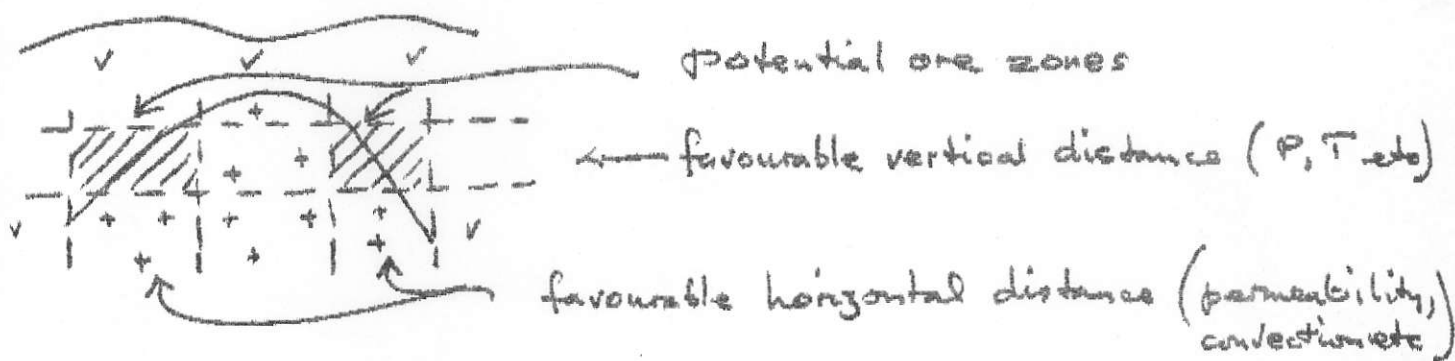 potential ore zones
favourable vertical distance (P, T etc)
favourable horizontal distance (permeability,
convection etc)